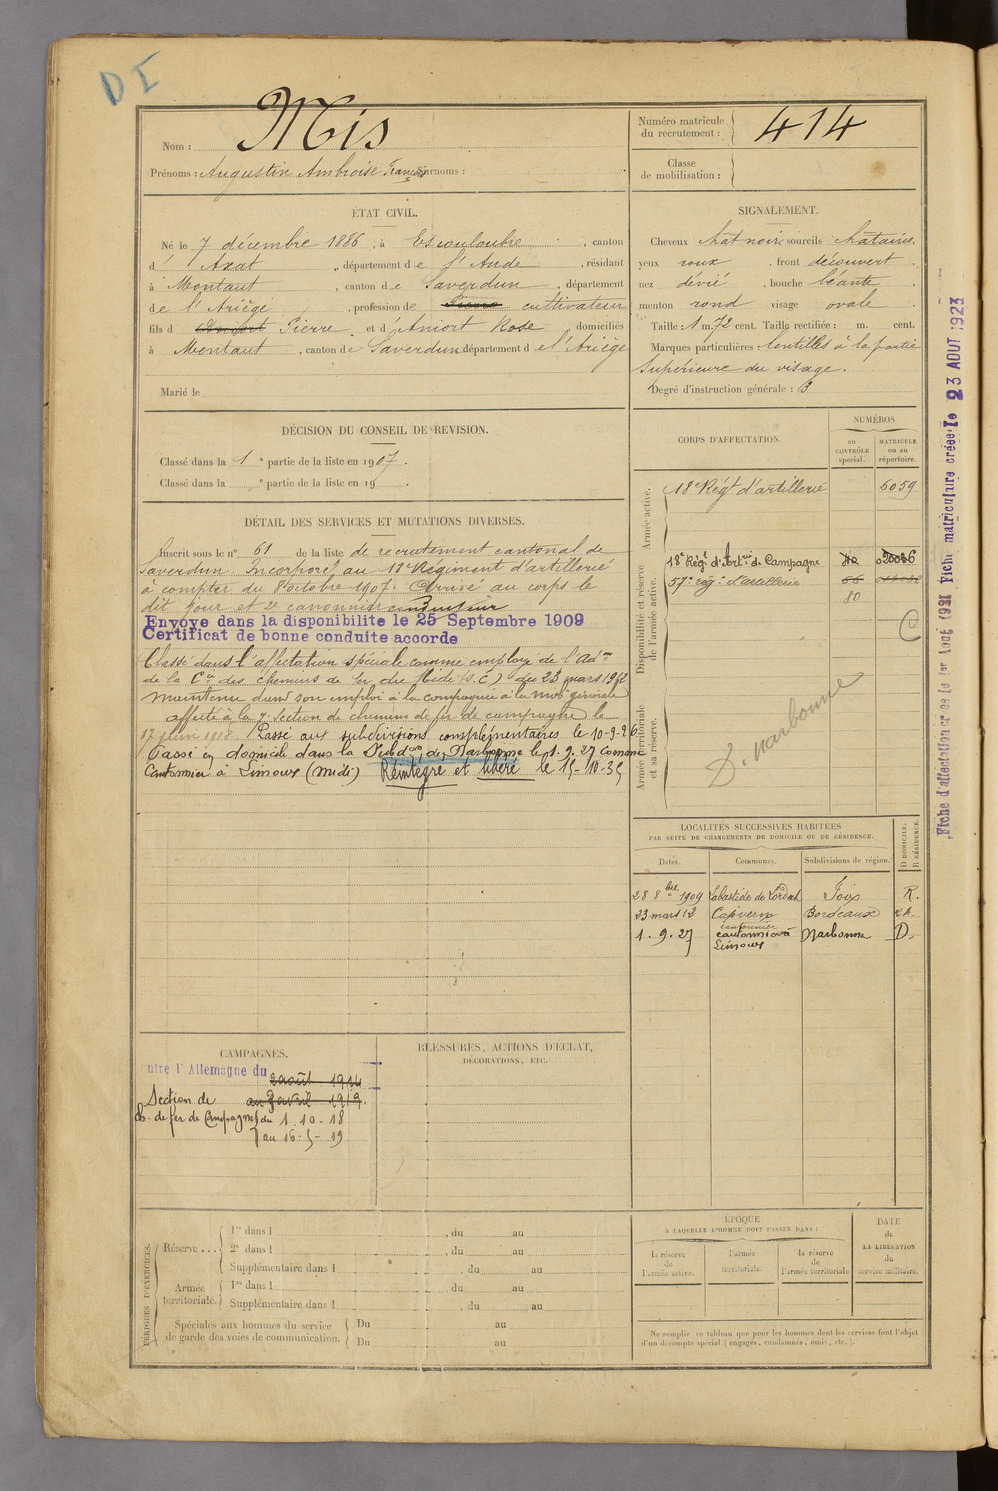 D I
Nom : Mis
Prénoms : Augustin Ambroise François Surnoms :
Numéro matricule du recrutement : 414
Classe de mobilisation :
ÉTAT CIVIL.
Né le 7 décembre 1886, à Escouloubre, canton
d' Axat, département de l'Aude, résidant
à Montaut, canton de Saverdun, département
de l'Ariège, profession de cultivateur
fils de Pierre et d'Aniort Rose domiciliés
à Montaut, canton de Saverdun département de l'Ariège
Marié le
SIGNALEMENT.
Cheveux chat noir, sourcils châtains,
yeux roux, front découvert
nez dévié, bouche béante
menton rond visage ovale
Taille : 1 m. 72 cent. Taille rectifiée : m. cent.
Marques particulières : lentilles à la partie
supérieure du visage.
Degré d'instruction générale : 3
DÉCISION DU CONSEIL DE REVISION.
Classé dans la 1e partie de la liste en 1907.
Classé dans la e partie de la liste en 19 .
DÉTAIL DES SERVICES ET MUTATIONS DIVERSES.
Inscrit sous le n° 61 de la liste de recrutement cantonal de
Saverdun. Incorporé au 18e Régiment d'artillerie
à compter du 8 octobre 1907. Arrivé au corps le
dit jour et 2e canonnier conducteur
Envoyé dans la disponibilite le 25 Septembre 1909
Certificat de bonne conduite accorde
Classé dans l'affectation spéciale comme employé de l'Adon
de la Cie des chemins de fer du Midi (S.C.) du 23 mars 1912
Maintenu dans son emploi à la compagnie à la mob générale
affecté à la 7e Section de chemins de fer de campagne le
17 juin 1918. Passé aux subdivisions complémentaires le 10-9-26
Passé en domicile dans la Subdon de Narbonne le 1.9.27 comme
Cantonnier à Limoux (Midi) Réintégré et libéré le 15-10-35
CORPS D'AFFECTATION.
NUMÉROS
au CONTRÔLE spécial.
MATRICULE ou au répertoire.
Armée active.
18e Régt d'artillerie 6059
Disponibilité et réserve de l'armée active.
18e Régt d'Artrie de Campagne
57e rég. d'artillerie 66
80
C
Armée territoriale et sa réserve.
D. Narbonne
LOCALITÉS SUCCESSIVES HABITÉES
PAR SUITE DE CHANGEMENTS DE DOMICILE OU DE RÉSIDENCE.
Dates. Communes. Subdivisions de région. D DOMICILE. R RÉSIDENCE.
28 8bre 1909 Labastide de Lordat Foix R.
23 mars 12 Capvern Bordeaux
1.9.27 cantonnier à Limoux Narbonne D.
Fiche d'affectation creée le 1er Aout 1921 Fiche matriculaire créée le 23 AOUT 1923
CAMPAGNES.
contre l'Allemagne du 2 août 1914
Section de au 3 avril 1919.
ch. de fer de Campagne du 1.10.18
au 16-5-19
BLESSURES, ACTIONS D'ÉCLAT,
DÉCORATIONS, ETC.
PÉRIODES D'EXERCICES.
Réserve ... 1re dans l , du au
2e dans l , du au
Supplémentaire dans l , du au
Armée territoriale. 1re dans l , du au
Supplémentaire dans l , du au
Spéciales aux hommes du service de garde des voies de communication. Du au
Du au
ÉPOQUE
À LAQUELLE L'HOMME DOIT PASSER DANS :
la réserve de l'armée active.
l'armée territoriale.
la réserve de l'armée territoriale
DATE de LA LIBÉRATION du service militaire.
Ne remplir ce tableau que pour les hommes dont les services font l'objet
d'un décompte spécial (engagés, condamnés, omis, etc.).